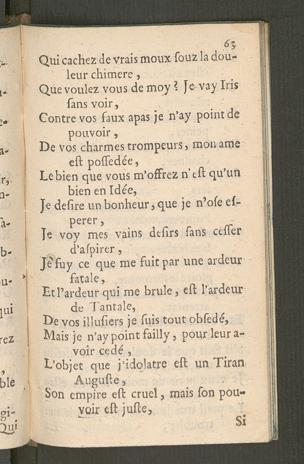 63
Qui cachez de vrais moux souz la dou-
leur chimere,
Que voulez vous de moy? Je vay Iris
sans voir,
Contre vos faux apas je n'ay point de
pouvoir,
De vos charmes trompeurs, mon ame
est possedée,
Le bien que vous m'offrez n'est qu'un
bien en Idée,
Je desire un bonheur, que je n'ose es-
perer,
Je voy mes vains desirs sans cesser
d'aspirer,
Je fuy ce que me fuit par une ardeur
fatale,
Et l'ardeur qui me brule, est l'ardeur
de Tantale,
De vos illusiers je suis tout obsedé,
Mais je n'ay point failly, pour leur a-
voir cedé,
L'objet que j'idolatre est un Tiran
Auguste,
Son empire est cruel, mais son pou-
voir est juste,
Si